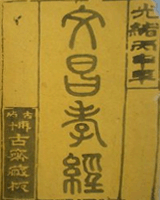 光緒丙午年
文昌孝經
博古齋藏板